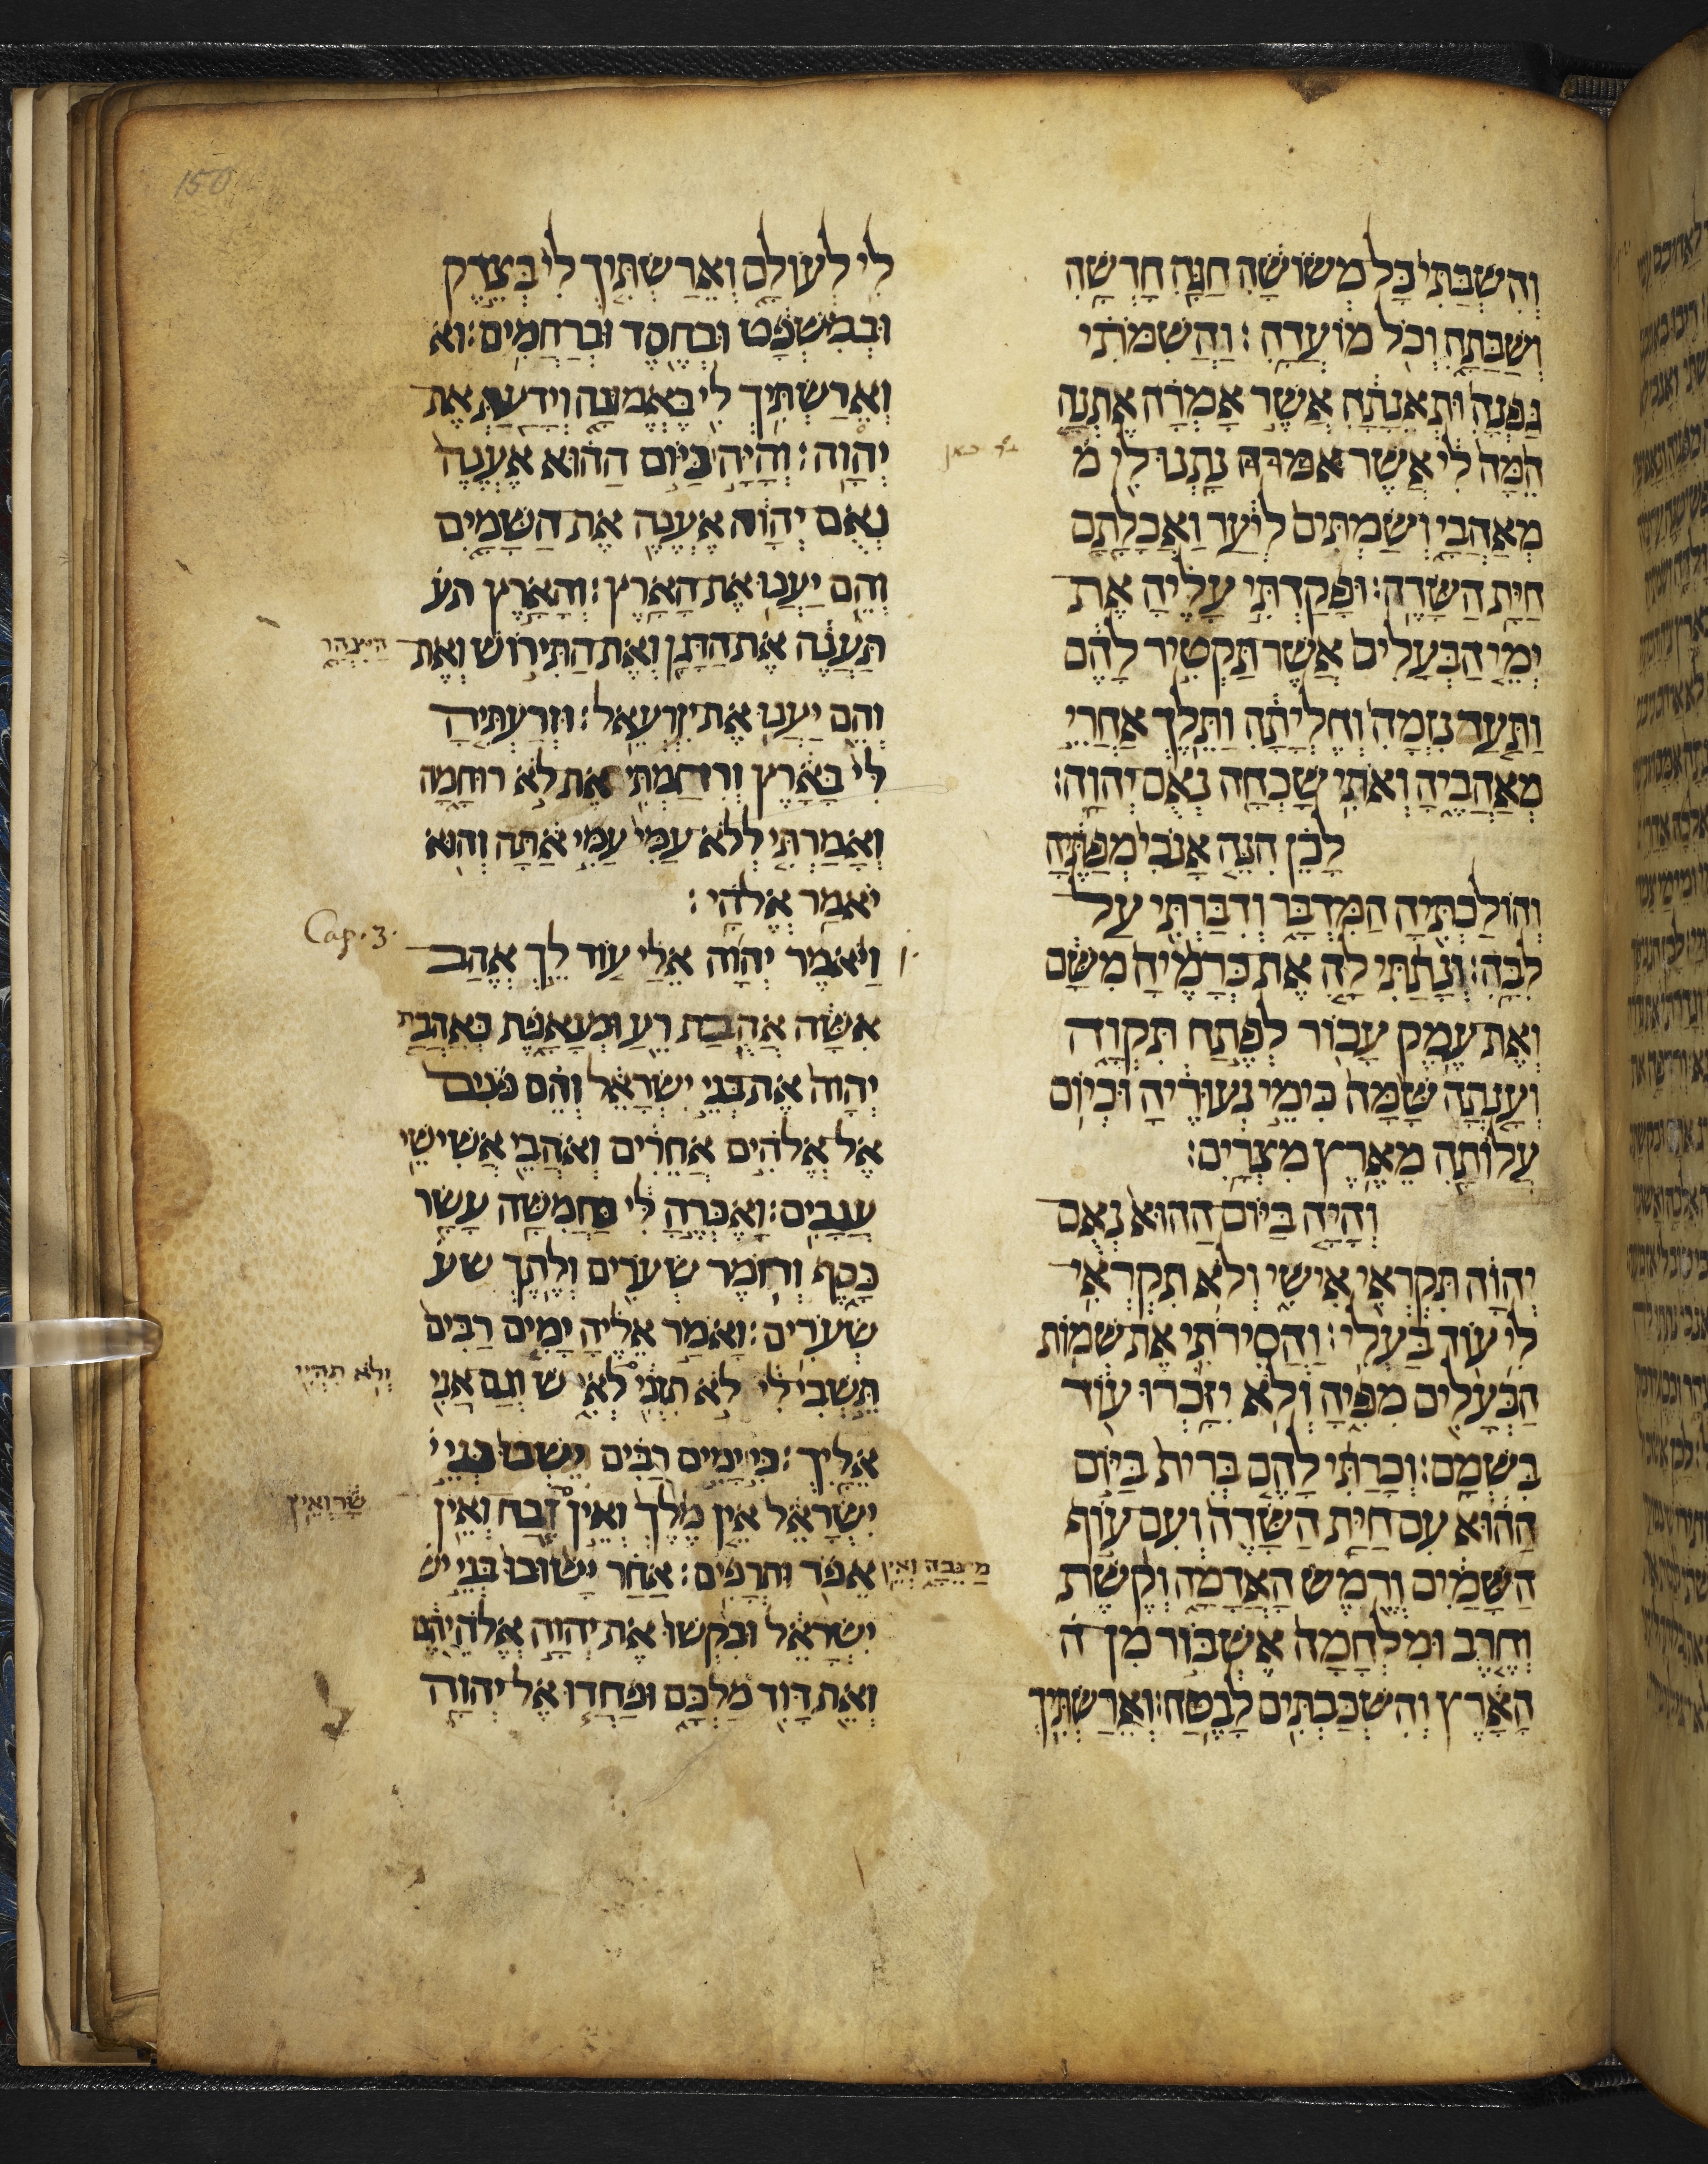 150
וְהִשְׁבַּתִּי כָּל מְשׂוֹשָׂהּ חַגָּהּ חָדְשָׁהּ
וְשַׁבַּתָּהּ וְכֹל מוֹעֲדָהּ׃ וַהֲשִׁמֹּתִי
גַּפְנָהּ וּתְאֵנָתָהּ אֲשֶׁר אָמְרָה אֶתְנָה
הֵמָּה לִי אֲשֶׁר אמרה נָתְנוּ לִי מ
מְאַהֲבָי וְשַׂמְתִּים לְיַעַר וַאֲכָלָתַם
חַיַּת הַשָּׂדֶה׃ וּפָקַדְתִּי עָלֶיהָ אֶת
יְמֵי הַבְּעָלִים אֲשֶׁר תַּקְטִיר לָהֶם
וַתַּעַד נִזְמָהּ וְחֶלְיָתָהּ וַתֵּלֶךְ אַחֲרֵי
מְאַהֲבֶיהָ וְאֹתִי שָׁכְחָה נְאֻם יְהוָה׃
לָכֵן הִנֵּה אָנֹכִי מְפַתֶּיהָ
וְהוֹלַכְתִּיהָ הַמִּדְבָּר וְדִבַּרְתִּי עַל
לִבָּהּ׃ וְנָתַתִּי לָהּ אֶת כְּרָמֶיהָ מִשָּׁם
וְאֶת עֵמֶק עָכוֹר לְפֶתַח תִּקְוָה
וְעָנְתָה שָּׁמָּה כִּימֵי נְעוּרֶיהָ וּכְיוֹם
עֲלוֹתָהּ מֵאֶרֶץ מִצְרָיִם׃
וְהָיָה בַיּוֹם הַהוּא נְאֻם
יְהוָה תִּקְרְאִי אִישִׁי וְלֹא תִקְרְאִי
לִי עוֹד בַּעְלִי׃ וַהֲסִירֹתִי אֶת שְׁמוֹת
הַבְּעָלִים מִפִּיהָ וְלֹא יִזָּכְרוּ עוֹד
בִּשְׁמָם׃ וְכָרַתִּי לָהֶם בְּרִית בַּיּוֹם
הַהוּא עִם חַיַּת הַשָּׂדֶה וְעִם עוֹף
הַשָּׁמַיִם וְרֶמֶשׂ הָאֲדָמָה וְקֶשֶׁת
וְחֶרֶב וּמִלְחָמָה אֶשְׁבּוֹר מִן ה
הָאָרֶץ וְהִשְׁכַּבְתִּים לָבֶטַח׃ וְאֵרַשְׂתִּיךְ
לִי לְעוֹלָם וְאֵרַשְׂתִּיךְ לִי בְּצֶדֶק
וּבְמִשְׁפָּט וּבְחֶסֶד וּבְרַחֲמִים׃ וא
וְאֵרַשְׂתִּיךְ לִי בֶּאֱמוּנָה וְיָדַעַתְּ אֶת
יְהוָה׃ וְהָיָה בַּיּוֹם הַהוּא אֶעֱנֶה
נְאֻם יְהוָה אֶעֱנֶה אֶת הַשָּׁמָיִם
וְהֵם יַעֲנוּ אֶת הָאָרֶץ׃ וְהָאָרֶץ תע
תַּעֲנֶה אֶת הַדָּגָן וְאֶת הַתִּירוֹשׁ וְאֶת היצהר
וְהֵם יַעֲנוּ אֶת יִזְרְעֶאל׃ וּזְרַעְתִּיהָ
לִּי בָּאָרֶץ וְרִחַמְתִּי אֶת לֹא רוּחָמָה
וְאָמַרְתִּי לְלֹא עַמִּי עַמִּי אַתָּה וְהוּא
יֹאמַר אֱלֹהָי׃
Cap. 3.
וַיֹּאמֶר יְהוָה אֵלַי עוֹד לֵךְ אֱהַב
אִשָּׁה אֲהֻבַת רֵעַ וּמְנָאָפֶת כְּאַהֲבַת
יְהוָה אֶת בְּנֵי יִשְׂרָאֵל וְהֵם פֹּנִים
אֶל אֱלֹהִים אֲחֵרִים וְאֹהֲבֵי אֲשִׁישֵׁי
עֲנָבִים׃ וָאֶכְּרֶהָ לִּי בַּחֲמִשָּׁה עָשָׂר
כָּסֶף וְחֹמֶר שְׂעֹרִים וְלֶתֶךְ שע
שְׂעֹרִים׃ וָאֹמַר אֵלֶיהָ יָמִים רַבִּים
תֵּשְׁבִי לִי לֹא תִזְנִי לְאִישׁ וְגַם אֲנִי ולא תהיי
אֵלָיִךְ׃ כִּי יָמִים רַבִּים יֵשְׁבוּ בְּנֵי י
יִשְׂרָאֵל אֵין מֶלֶךְ וְאֵין זֶבַח וְאֵין שָׂר וְאֵין
אֵפֹד וּתְרָפִים׃ אַחַר יָשׁוּבוּ בְּנֵי יש מַצֵּבָה וְאֵין
יִשְׂרָאֵל וּבִקְשׁוּ אֶת יְהוָה אֱלֹהֵיהֶם
וְאֵת דָּוִד מַלְכָּם וּפָחֲדוּ אֶל יְהוָה